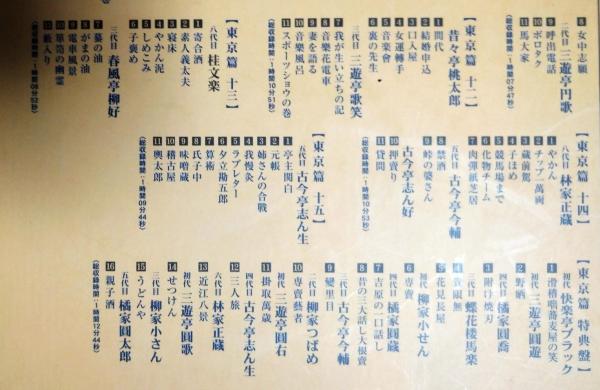 8 女中志願
二代目 三遊亭円歌
9 呼出電話
10 ボロタク
11 馬大家
(総収録時間・1時間07分47秒)
【東京篇 十二】
昔々亭桃太郎
1 間代
2 結婚申込
3 口入屋
4 女運轉手
5 音樂會
6 裏の先生
三代目 三遊亭歌笑
7 我が生い立ちの記
8 音樂花電車
9 妻を語る
10 音樂風呂
11 スポーツショウの巻
(総収録時間・1時間10分51秒)
【東京篇 十三】
八代目 桂文楽
1 寄合酒
2 素人義太夫
3 寝床
4 やかん泥
5 しめこみ
6 子褒め
三代目 春風亭柳好
7 墓の油
8 がまの油
9 電車風景
10 箪笥の幽霊
11 籔入り
(総収録時間・1時間08分52秒)
【東京篇 十四】
八代目 林家正蔵
1 やかん
2 チップ一萬両
3 蔵前駕
4 子ほめ
5 競馬場まで
6 化物チーム
7 肉弾紙芝居
五代目 古今亭今輔
8 禁酒
9 峠の婆さん
古今亭志ん好
10 押賣り
11 貸間
(総収録時間・1時間10分53秒)
【東京篇 十五】
五代目 古今亭志ん生
1 亭主関白
2 元帳
3 姉さんの合戦
4 我慢灸
5 ラブレター
6 夕立勘五郎
7 算術
8 氏子中
9 味噌蔵
10 稽古屋
11 與太郎
(総収録時間・1時間09分44秒)
【東京篇 特典盤】
初代 快楽亭ブラック
1 滑稽噺蕎麦屋の笑
初代 三遊亭圓遊
2 野晒
四代目 橘家圓喬
3 附け焼刃
三代目 蝶花楼馬楽
4 長屋無
5 花見長屋
初代 柳家小せん
6 専賣
四代目 橘家圓蔵
7 吉原の一口話し
8 昔の三大話し大根賣
三代目 古今亭今輔
9 雙里目
二代目 柳家つばめ
10 専賣藝者
初代 三遊亭圓右
11 掛取萬歳
四代目 古今亭志ん生
12 三人旅
六代目 林家正蔵
13 近江八景
初代 三遊亭圓歌
14 せつけん
三代目 柳家小さん
15 うどんや
五代目 橘家圓太郎
16 親子酒
(総収録時間・1時間12分44秒)